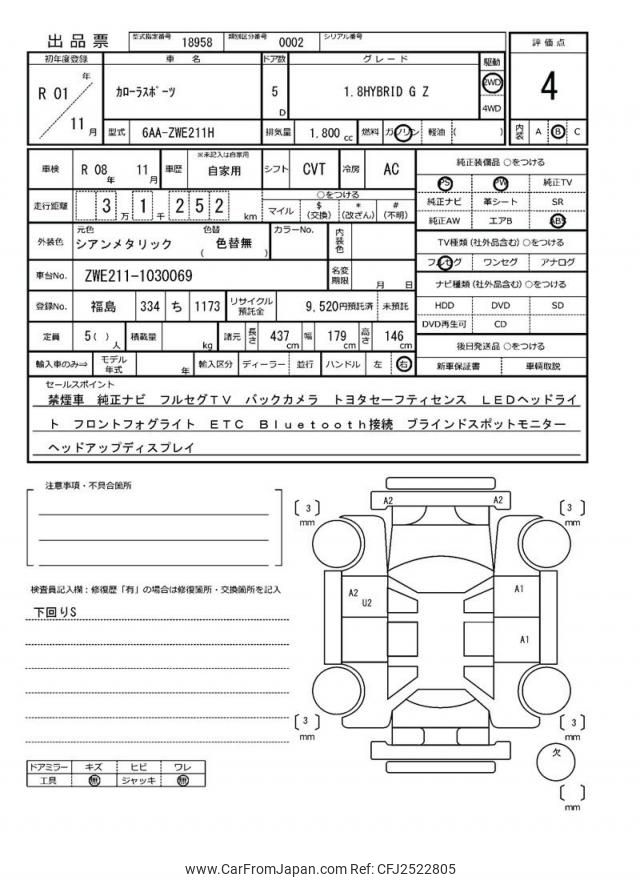 出品票 型式指定番号 18958 類別区分番号 0002 シリアル番号
初年度登録 車名 ドア数 グレード 駆動 評価点
R 01 年 11 月 カローラスポーツ 5 D 1.8HYBRID G Z 2WD 4WD 4
型式 6AA-ZWE211H 排気量 1,800 cc 燃料 ガソリン 軽油 ( ) 内装 A B C
車検 R 08 年 11 月 車歴 ※未記入は自家用 自家用 シフト CVT 冷房 AC
走行距離 3 万 1 千 2 5 2 km ○をつける マイル $ (交換) * (改ざん) # (不明)
外装色 元色 シアンメタリック 色替 ( 色替無 ) カラーNo. 内装色
車台No. ZWE211-1030069 名変期限 月 日
登録No. 福島 334 ち 1173 リサイクル預託金 9,520円預託済 未預託
定員 5( ) 人 積載量 kg 諸元 長さ 437 cm 幅 179 cm 高さ 146 cm
輸入車のみ⇒ モデル年式 年 輸入区分 ディーラー 並行 ハンドル 左 右
純正装備品 ○をつける
PS PW 純正TV
純正ナビ 革シート SR
純正AW エアB ABS
TV種類(社外品含む) ○をつける
フルセグ ワンセグ アナログ
ナビ種類(社外品含む) ○をつける
HDD DVD SD
DVD再生可 CD
後日発送品 ○をつける
新車保証書 車輌取説
セールスポイント
禁煙車 純正ナビ フルセグTV バックカメラ トヨタセーフティセンス LEDヘッドライ
ト フロントフォグライト ETC Bluetooth接続 ブラインドスポットモニター
ヘッドアップディスプレイ
注意事項・不具合箇所
検査員記入欄:修復歴「有」の場合は修復箇所・交換箇所を記入
下回りS
ドアミラー キズ ヒビ ワレ
工具 無 ジャッキ 無
A2 A2
[ 3 ] mm [ 3 ] mm
A2 U2 A1
A1
[ 3 ] mm [ 3 ] mm
欠
[ ] mm
www.CarFromJapan.com Ref: CFJ2522805